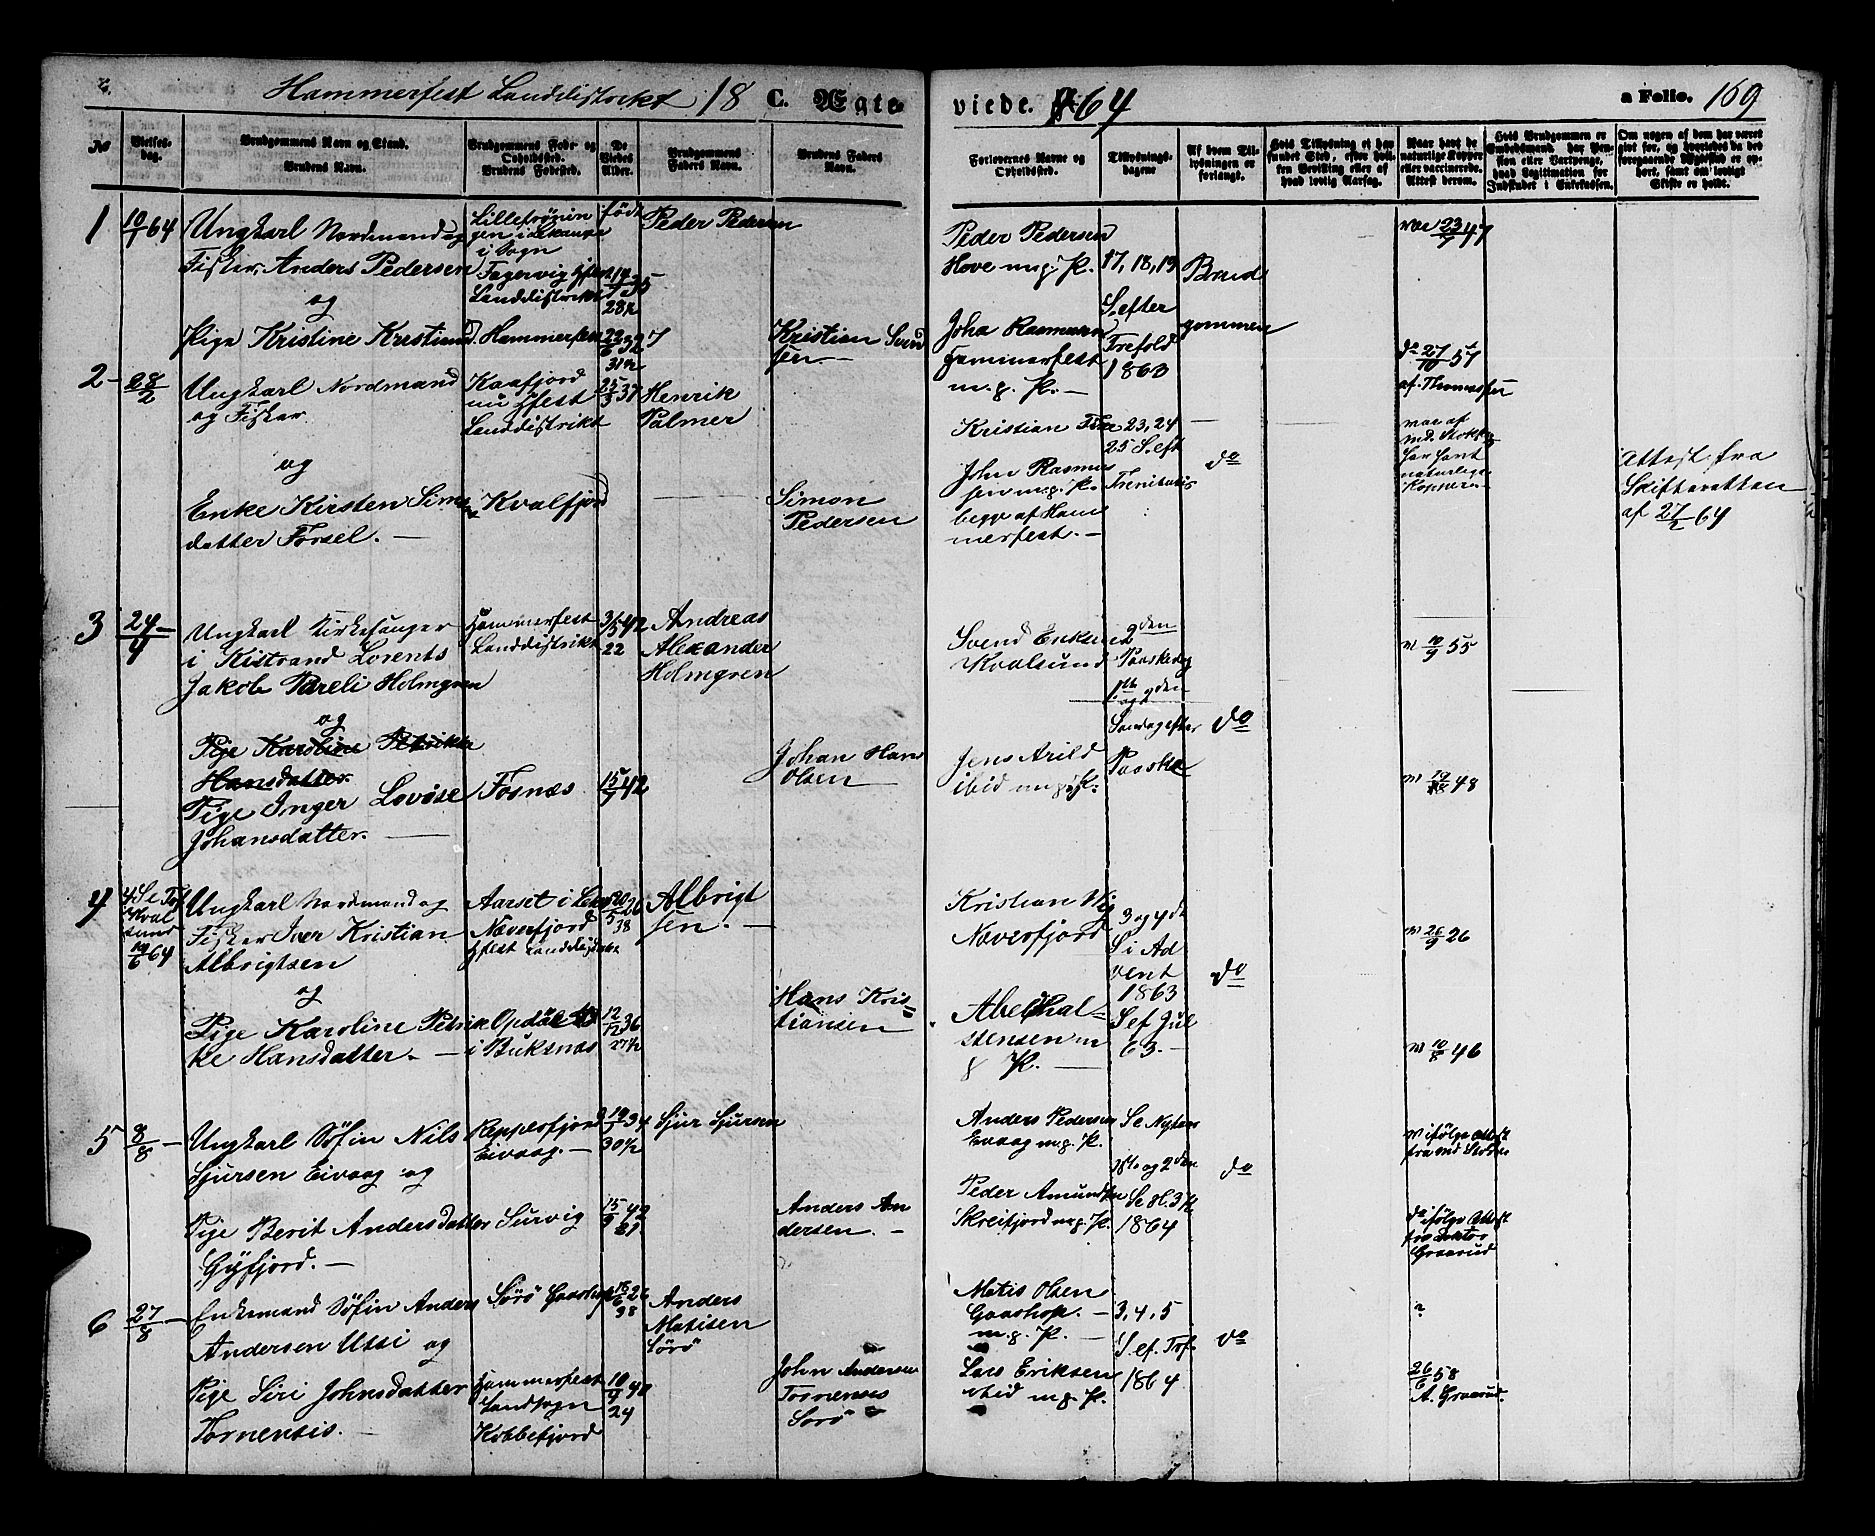 Hammerfest Landdistrikt 18 C. Ægte
viede. 1864 a Folio. 169
No
Vielses-
dag.
Brudgommens Navn og Stand.
Brudens Navn.
Brudgommens Føde- og
Opholdssted.
Brudens Fødested.
De
Viedes
Alder.
Brudgommens
Faders Navn.
Brudens Faders
Navn.
Forlovernes Navne og
Opholdssted.
Tillysnings-
dagene
Af hvem Til-
lysningen er
forlangt.
Hvis Tillysning ei har
fundet Sted, efter hvil-
ken Bevilling eller af
hvad lovlig Aarsag.
Naar havt de
naturlige Kopper
eller vaccinerede.
Attest derom.
Hvis Brudgommen er
Embedsmand, har Pen-
sion eller Vartpenge,
hvad Legitimation for
Indskudet i Enkekassen.
Om nogen af dem har været
gift før, og hvorledes da det
foregaaende Ægteskab er op-
hørt, samt om lovligt
Skifte er holdt.
1
10/1 64
Ungkarl Nordmand og
Fisker, Anders Pedersen
og
Pige Kristine Kristians D.
i Sogn
Fagervig Hfest
Landdistrikt
Hammerfest
født
14/9 35
28½
22/6 32
31½
Peder Pedersen
Kristian Svend
sen —
Peder Pedersen
Hove m.g. P.
Joha Rasmussen
Hammerfest
m. g. P. —
17, 18, 19
S. efter
Trefold
1863
Brud
gommen
vac 23/7 47
do 27/10 57
af. Thomassen
2 -
28/2
Ungkarl Nordmand
og Fisker
og
Enke Kirsten Simons
datter Forsel. —
Kaafjord
nu Hfest
Landdistrikt
Kvalfjord
25/3 37
Henrik
Palmer
Simon
Pedersen
Kristian
John Rasmus
sen m.g. P.
begge af Ham
merfest. —
23, 24
25 S. eft
Trenitatis
do
vac af
md. Stokke
har havt
naturlige
Kopper
Attest fra
Skifteretten
af 27/2 64
3
24/4 —
Ungkarl Kirkesanger
i Kistrand Lorents
Jakob Pareli Holmgren
og
Pige Karoline Petrikke
Hansdatter
Pige Inger Lovise
Johansdatter. —
Hammerfest
Landdistrikt
Fosnæs
31/5 42
22
15/7 42
Andreas
Alexander
Holmgren
Johan Hans
Olsen —
Svend Eriksen
Kvalsund
Jens Arild
ibid m.g. P.
2den
Paaskedag
1ste
og 2den
Søndag efter
Paaske
do
v 10/9 55
v 19/ 48
4
4 S. e Tref
Kval
sund
19/6 64
Ungkarl Nordmand og
Fisker Iver Kristian
Albrigtsen
og
Pige Karoline Petrik
ke Hansdatter. —
Næverfjord
Hfest Landdistrikt
Opdøl
i Buksnæs
20/5 26
38
12/12 36
27½
Albrigt
sen. —
Hans Kris-
tiansen
Kristian Wig
Næverfjord
Abel Hal-
stensen m
g P. —
3 og 4de
S i Ad
vent
1863
S ef Jul
63. —
do
v 26/9 26
v 10/8 46
5
8/8 —
Ungkarl Søfin Nils
Sjursen Eivaag og
Pige Berit Andersdatter
Gyfjord. —
Repperfjord
Eivaag. —
Survig
19/1 34
30½
15/9 42
21
Sjur Sjursen
Anders An
dersen. —
Anders Pedersen
Eivaag m.g. P.
Peder Amundsen
Skreifjord m.g. P.
S e Nytaar
1ste og 2den
S e H. 3 K
1864
do
v ifølge Attest
fra md Stokke
do ifølge Attest
fra doktor
Graarud
6
27/8 —
Enkemand Søfin Anders
Andersen Utsi og
Pige Siri Johnsdatter
Tornensis. —
Sørø Gaashop
Hammerfest
Landsogn
Kobbefjord
16/6 26
38
10/9 40
24
Anders
Matisen
Sørø
John Andersen
Tornensis
Sørø
Matis Olsen
Gaashop. —
m. g. P. —
Lars Eriksen
ibid m.g. P.
3, 4, 5
S. ef. Tref.
1864
do
26/6 58
A. Graarud